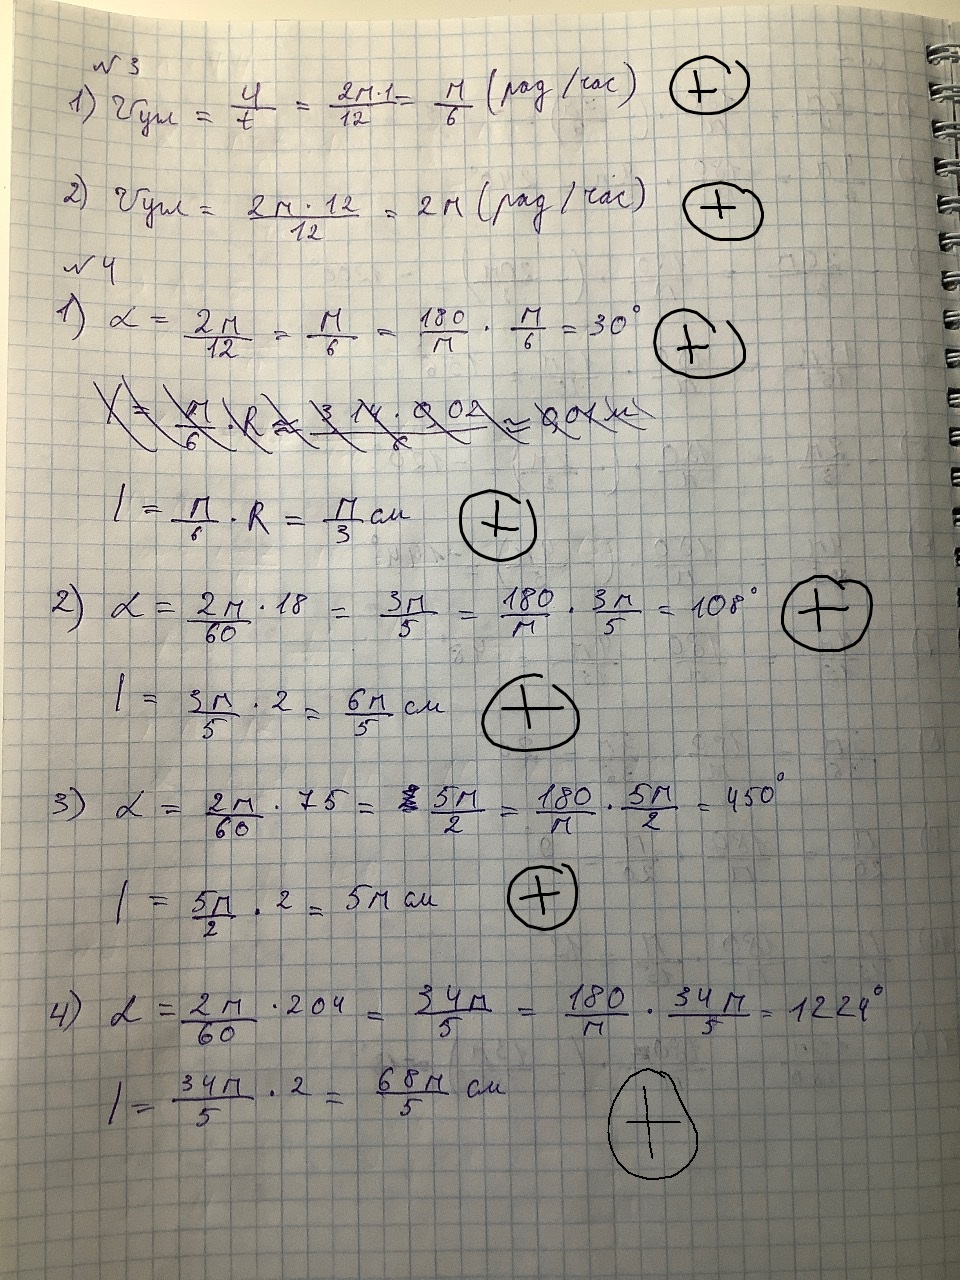 №3
1) Vугл = φ/t = 2π·1/12 = π/6 (рад/час) +
2) Vугл = 2π·12/12 = 2π (рад/час) +
№4
1) α = 2π/12 = π/6 = 180/π · π/6 = 30° +
l = π/6 · R ≈ 3,14·0,02/6 ≈ 0,01 м
l = π/6 · R = π/3 см +
2) α = 2π/60 · 18 = 3π/5 = 180/π · 3π/5 = 108° +
l = 3π/5 · 2 = 6π/5 см +
3) α = 2π/60 · 75 = 5π/2 = 180/π · 5π/2 = 450°
l = 5π/2 · 2 = 5π см +
4) α = 2π/60 · 204 = 34π/5 = 180/π · 34π/5 = 1224°
l = 34π/5 · 2 = 68π/5 см +